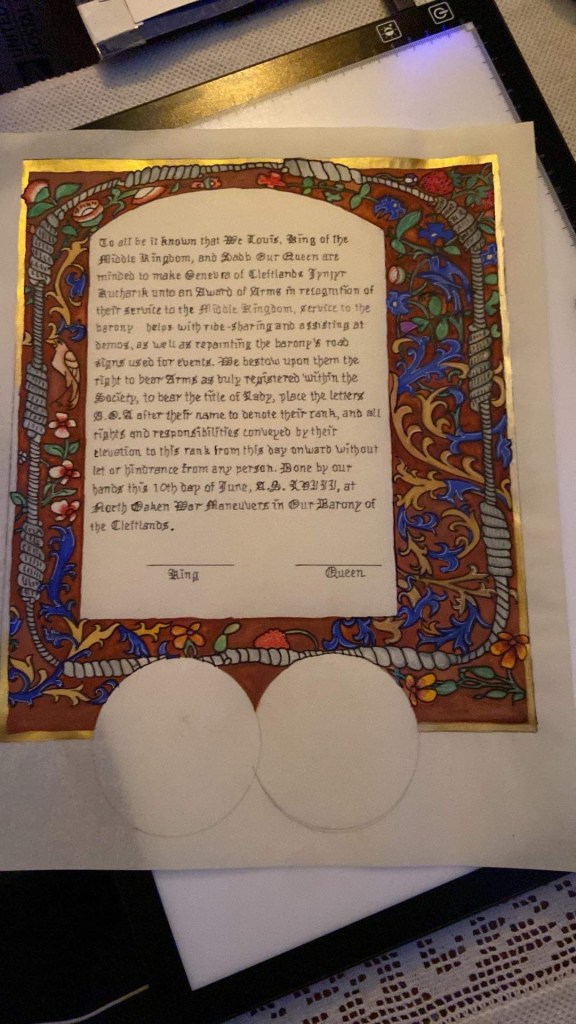 To all be it known that We Louis, King of the
Middle Kingdom, and Dabb Our Queen are
minded to make Genevrs of Cleftlands
unto an Award of Arms in recognition of
their service to the Middle Kingdom, service to the
barony helps with ride-sharing and assisting at
demos, as well as repainting the barony's road
signs used for events. We bestow upon them the
right to bear Arms as duly registered within the
Society, to bear the title of Lady, place the letters
A.O.A after their name to denote their rank, and all
rights and responsibilities conveyed by their
elevation to this rank from this day onward without
let or hindrance from any person. Done by our
hands this 10th day of June, A.S. LVIII, at
North Oaken War Maneuvers in Our Barony of
the Cleftlands.
King Queen